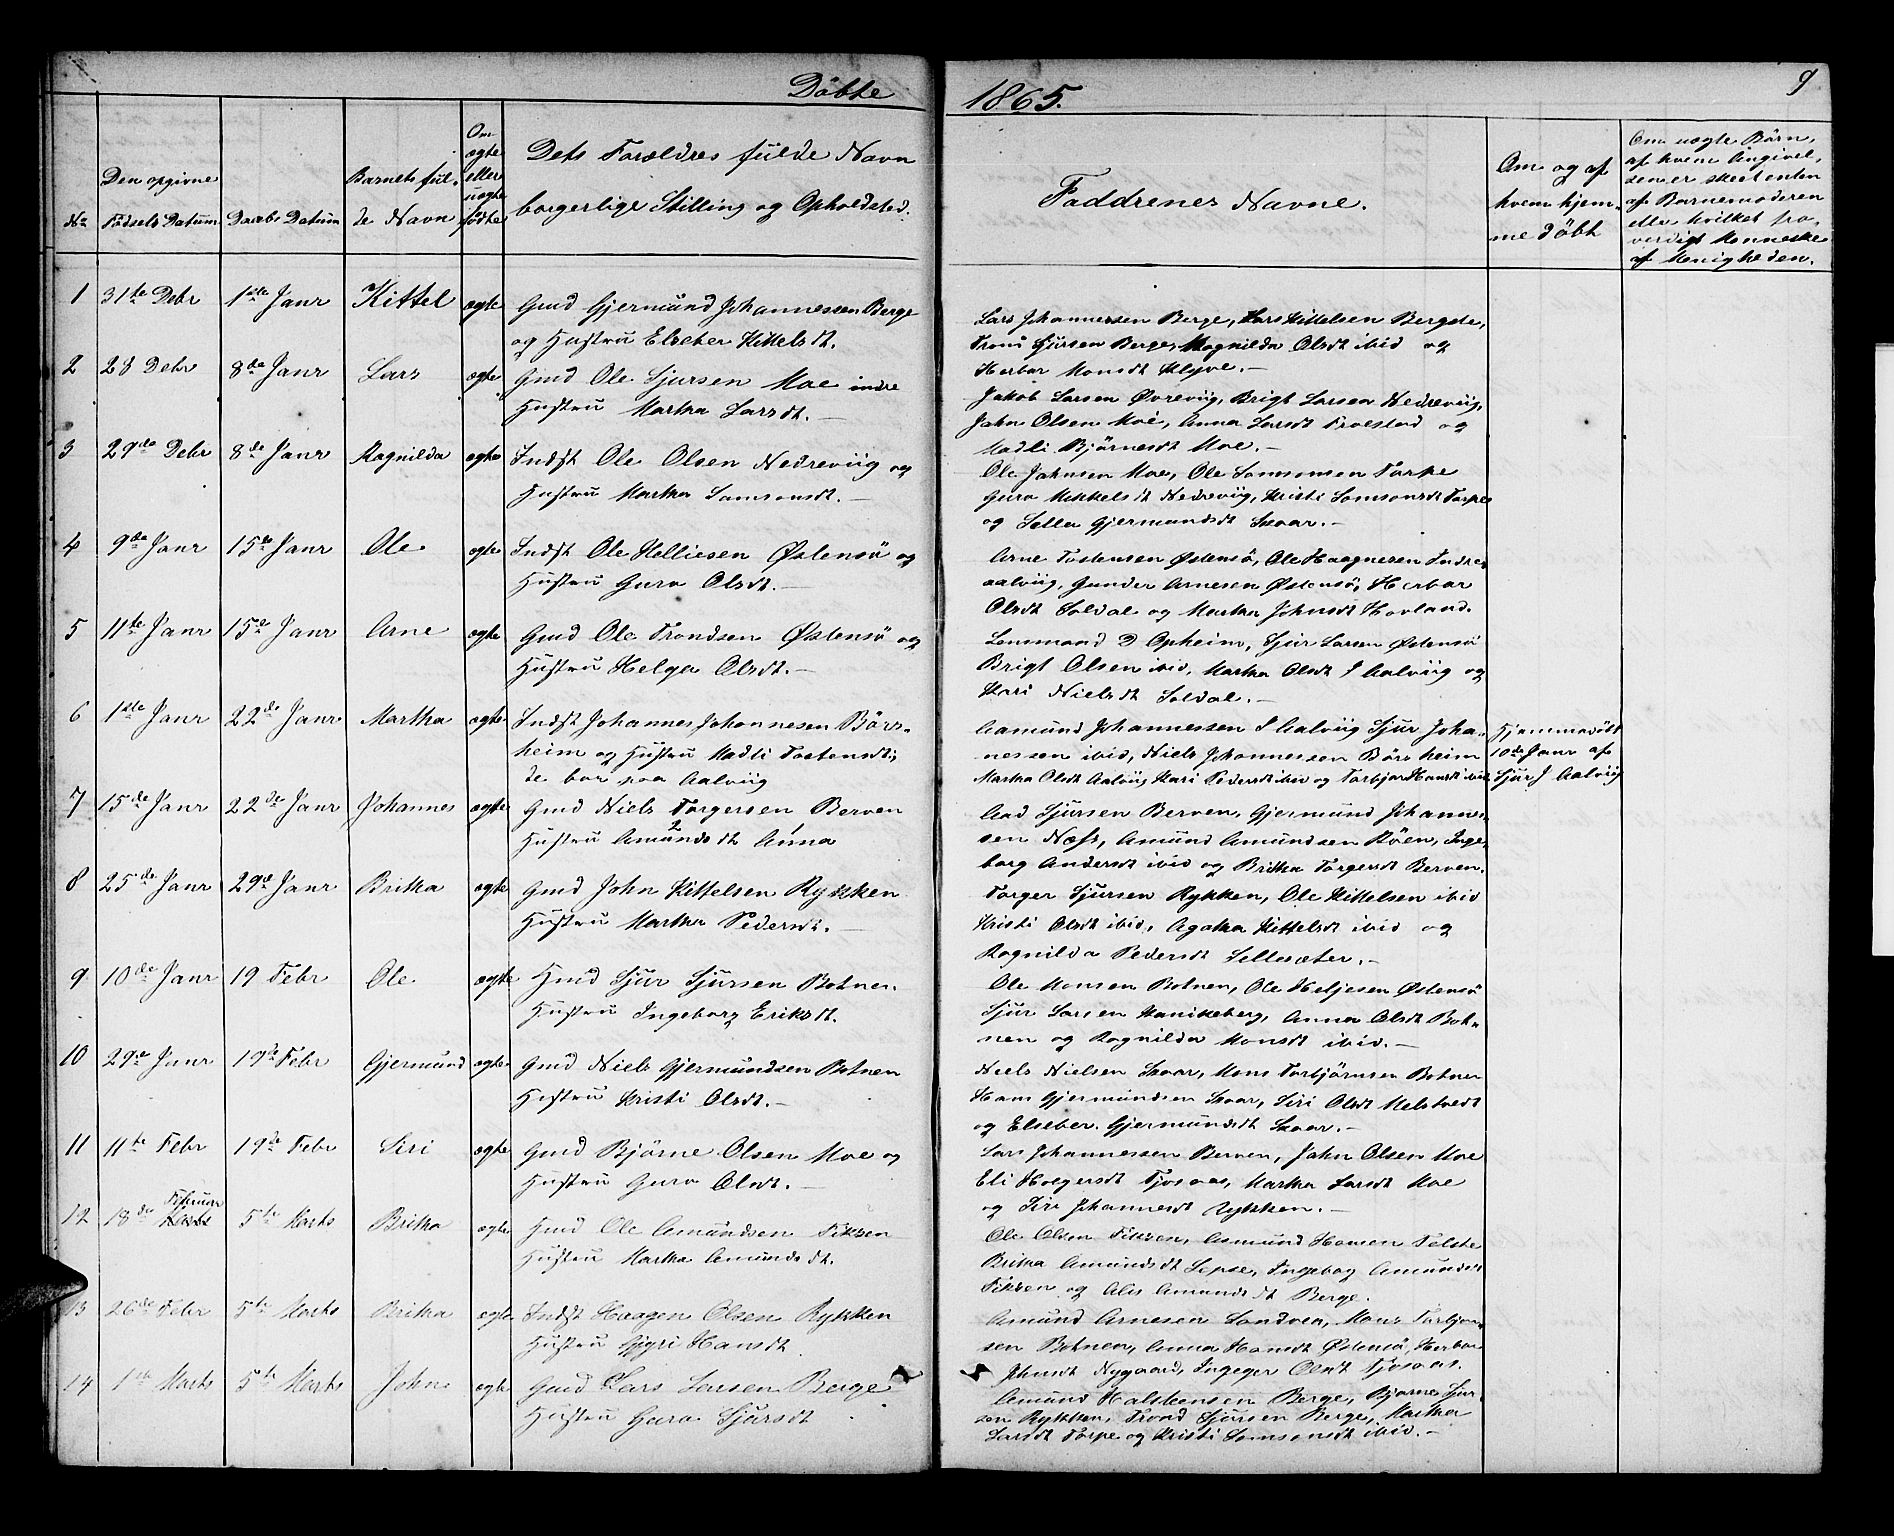 Döbte
1865.
9
No
Den opgivne
Födsels Datum
Daabs Datum
Barnets ful-
de Navn
Om
ægte
eller
uægte
födte
Dets Forældres fulde Navn
borgerlige Stilling og Opholdsted.
Faddrenes Navne.
Om og af
hvem hjem-
me döbt
Om uægte Börn,
af hvem Angivel-
sen er skeet enten
af Barnemoderen
eller hvilket tro-
verdigt Menneske
af Menigheden.
1 31te Debr 1ste Janr Kittel ægte Gmd Gjermund Johannessen Berge
og Hustru Elseber Kittelsdt.
Lars Johannessen Berge, Lars Kittelsen Bergste,
Trond Sjursen Berge, Ragnilda Olsdt ibid og
Herbor Monsdt Klyve.-
2 28 Debr 8de Janr Lars ægte Gmd Ole Sjursen Moe indre
Hustru Martha Larsdt.-
Jakob Larsen Øvreviig, Brigt Larsen Nedreviig,
John Olsen Moe, Anna Larsdt Froestad og
Madli Björnesdt Moe.-
3 29de Debr 8de Janr Ragnilda ægte Indst Ole Olsen Nedreviig og
Hustru Martha Samsonsdt.-
Ole Johnsen Moe, Ole Samsonsen Torpe
Guro Mikkelsdt Nedreviig, Kristi Samsonsdt Torpe
og Sella Gjermundsdt Skaar.-
4 9de Janr 15de Janr Ole ægte Indst Ole Helliesen Østensö og
Hustru Guro Olsdt.-
Arne Tostensen Østensö, Ole Haagnesen Indre
aalviig, Gunder Arnesen Østensö, Herbor
Olsdt Soldal og Martha Johnsdt Hovland.
5 11te Janr 15de Janr Arne ægte Gmd Ole Trondsen Østensö og
Hustru Helga Olsdt.-
Lensmand D Opheim, Sjur Larsen Østensö
Brigt Olsen ibid, Martha Olsdt I Aalviig og
Kari Nielsdt Soldal.-
6 1ste Janr 22de Janr Martha ægte Indst Johannes Johannesen Börs-
heim og Hustru Madli Tostensdt;
de bor paa Aalviig
Aamund Johannessen I Aalviig Sjur Joha-
nessen ibid, Niels Johannessen Börsheim
Martha Olsdt Aalviig, Kari Pedersdt ibid og Torbjor Hansdt ibid
Hjemmedöbt
10de Janr af
Sjur J Aalviig
7 15de Janr 22de Janr Johannes ægte Gmd Niels Torgersen Berven
Hustru Amundsdt Anna
Aad Sjursen Berven, Gjermund Johannes-
sen Næss, Amund Amundsen Röen, Inge-
borg Andersdt ibid og Britha Torgersdt Berven.
8 25de Janr 29de Janr Britha ægte Gmd John Kittelsen Rykken
Hustru Martha Pedersdt.-
Torger Sjursen Rykken, Ole Kittelsen ibid
Kristi Olsdt ibid, Agatha Kittelsdt ibid og
Ragnilda Pedersdt Sellesæter.-
9 10de Janr 19 Febr Ole ægte Gmd Sjur Sjursen Botnen
Hustru Ingeborg Eriksdt.
Ole Monsen Botnen, Ole Heljesen Østensö
Sjur Larsen Kanikeberg, Anna Olsdt Bot-
nen og Ragnilda Monsdt ibid.-
10 29de Janr 19de Febr Gjermund ægte Gmd Niels Gjermundsen Botnen
Hustru Kristi Olsdt.-
Niels Nielsen Skaar, Mons Torbjörnsen Botnen
Hans Gjermundsen Skaar, Siri Olsdt Melstvedt
og Elseber Gjermundsdt Skaar.-
11 11te Febr 19de Febr Siri ægte Gmd Björne Olsen Moe og
Hustru Guro Olsdt.-
Lars Johannessen Berven, John Olsen Moe
Eli Holgersdt Tjosaas, Martha Larsdt Moe
og Siri Johannesdt Rykken.-
12 18de Februar 5te Marts Britha ægte Gmd Ole Amundsen Fiksen
Hustru Martha Amundsdt.
Ole Olsen Fiksen, Asmund Hansen Tolste
Britha Amundsdt Sepse, Ingebog Amundsdt
Fiksen og Alis Amundsdt Berge.
13 26de Febr 5te Marts Britha ægte Indst Haagen Olsen Rykken
Hustru Gjyri Hansdt.
Amund Arnesen Sandven, Mons Torbjorn-
sen Botnen, Anna Hansdt Østensö, Herbor
Johnsdt Nygaard, Ingeger Olsdt Tjosaas.
14 1ste Marts 5te Marts John ægte Gmd Lars Larsen Berge
Hustru Guro Sjursdt
Amund Halstensen Berge, Bjorne Sjur-
sen Rykken, Trond Sjursen Berge, Martha
Larsdt Torpe og Kristi Samsonsdt ibid.-